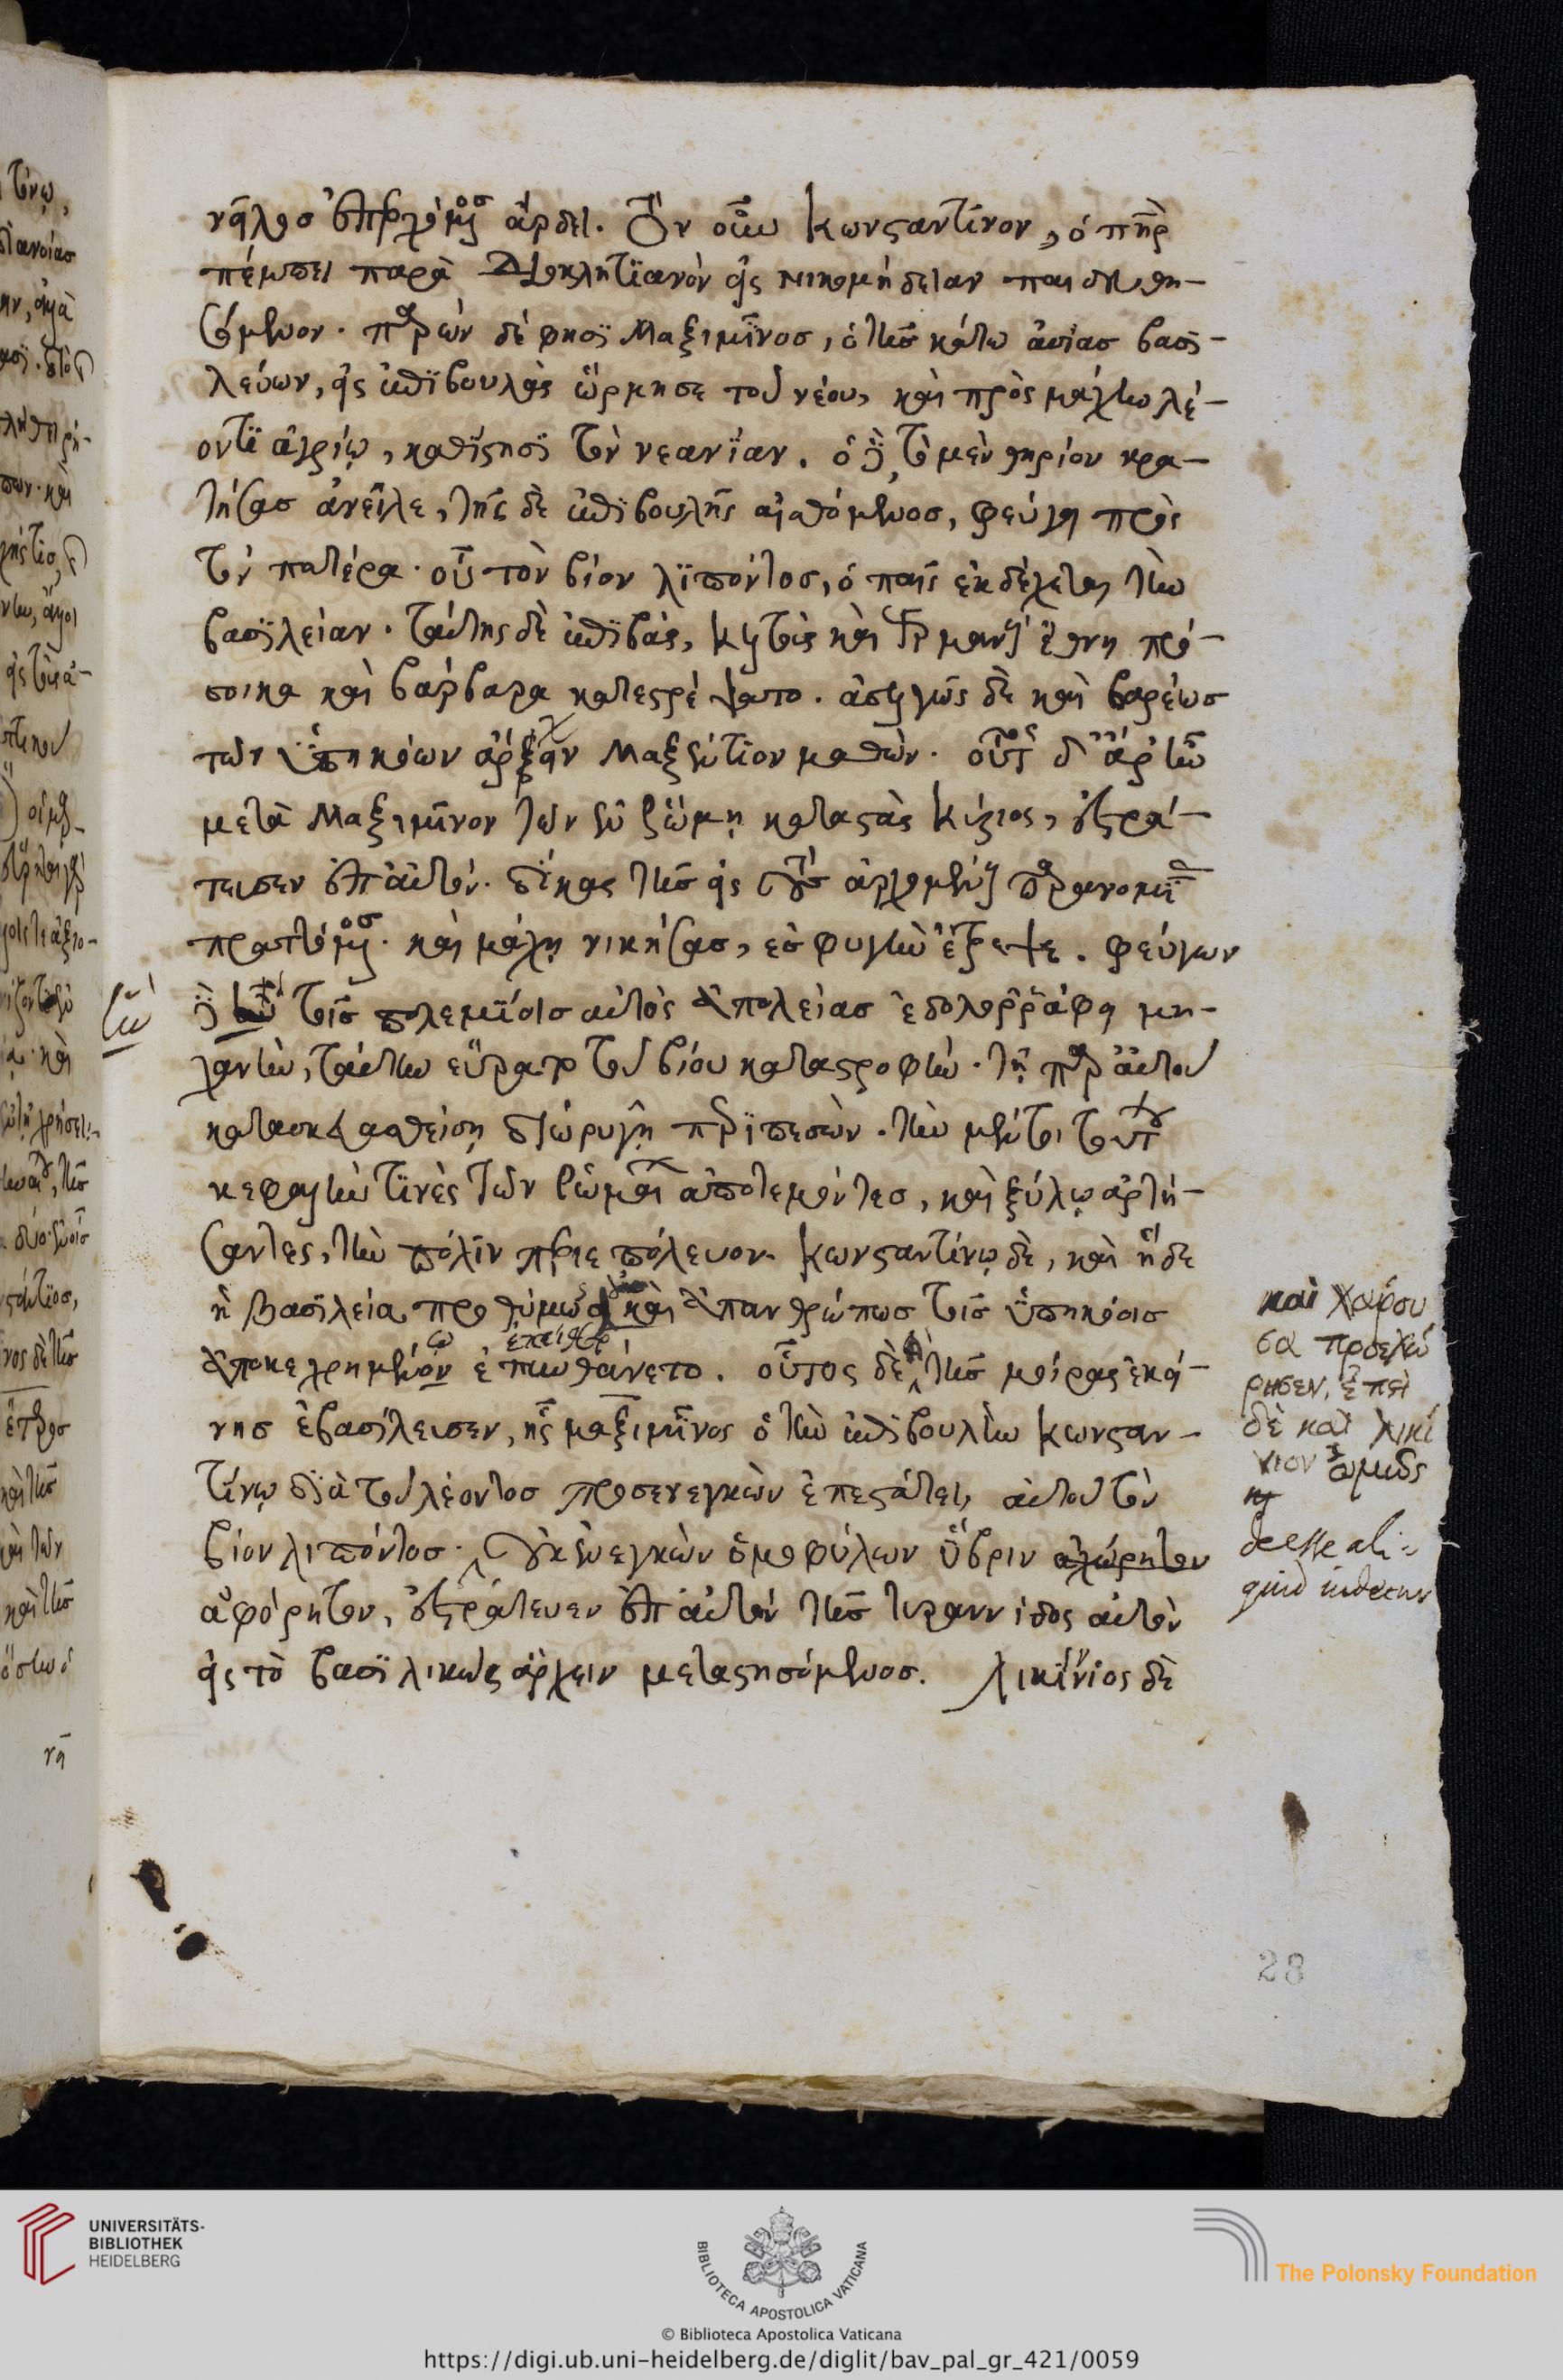 ἄρδει. Ὃν οὖν Κωνσταντῖνον, ὁ πατὴρ
πέμπει παρὰ Διοκλητϊανὸν εἰς Νικομήδειαν παιδευθη-
σόμενον. παρὼν δὲ φησῒ Μαξιμῖνος, ὁ τῆς κάτω ἀσίας βασϊ-
λεύων, εἰς ἐπϊβουλὰς ὥρμησε τοῦ νέου, καὶ πρὸς μάχην λέ-
οντϊ ἀγρίῳ, καθίστησϊ τὸν νεανΐαν. ὁ δὲ, τὸ μὲν θηρίον κρα-
τήσας ἀνεῖλε, τῆς δὲ ἐπϊβουλῆς αἰσθόμενος, φεύγει πρὸς
τὸν πατέρα. οὗ τὸν βίον λϊπόντος, ὁ παῖς ἐκδέχεται τὴν
βασϊλείαν. ταύτης δὲ ἐπϊβὰς, Κελτοὺς καὶ Γερμανοὺς ἔθνη πρό-
σοικα καὶ βάρβαρα κατεστρέψατο. ἀσελγῶς δὲ καὶ βαρέως
τῶν ὑπηκόων ἄρχειν Μαξέντϊον μαθὼν. οὗτος δ' ἄρ' ἦν
μετὰ Μαξιμῖνον τῶν ἐν Ῥώμῃ καταστὰς κύριος, ἐστρά-
τευσεν ἐπ' αὐτόν. δίκας τῆς εἰς τοὺς ἀρχομένους παρανομΐας
πραττόμενος. καὶ μάχῃ νικήσας, ἐς φυγὴν ἔτρεψε. φεύγων
δὲ ἣν τοῖς πολεμΐοις αὐτὸς ἀπωλείας ἐδολορράφει μη-
χανὴν, ταύτην εὕρατο τοῦ βίου καταστροφήν. τῇ παρ' αὐτοῦ
κατασκευασθείσῃ διώρυγῃ περϊπεσών. τὴν μέντοι τούτου
κεφαλὴν τϊνὲς τῶν Ῥωμαίων ἀποτεμόντες, καὶ ξύλῳ ἀρτή-
σαντες, τὴν πόλϊν περιεπόλευον. Κωνσταντίνῳ δὲ, καὶ ἥδε
ἡ βασϊλεία προθύμως καὶ ἀπανθρώπως τοῖς ὑπηκόοις
ἀποκεχρημένον ἐπυνθάνετο. οὗτος δὲ τῆς μοίρας ἐκεί-
νης ἐβασΐλευσεν, ἧς Μαξιμῖνος ὁ τὴν ἐπϊβουλὴν Κωνσταν-
τίνῳ διὰ τοῦ λέοντος προσενεγκὼν ἐπεστάτει, αὐτοῦ τὸν
βίον λιπόντος. οὐκ ἐνεγκὼν ὁμοφύλων ὕβριν ἀχώρητον
ἀφόρητον, ἐστράτευεν ἐπ' αὐτὸν τῆς τυραννίδος αὐτὸν
εἰς τὸ βασϊλικῶς ἄρχειν μεταστησόμενος. Λικίνιος δὲ
ἣν
καὶ χαίρου
σα προσεχώ
ρησεν, ἐπεὶ
δὲ καὶ λικί
νιον ὠμῶς
deesse ali-
quid
28
UNIVERSITÄTS-
BIBLIOTHEK
HEIDELBERG
BIBLIOTECA APOSTOLICA VATICANA
The Polonsky Foundation
© Biblioteca Apostolica Vaticana
https://digi.ub.uni-heidelberg.de/diglit/bav_pal_gr_421/0059